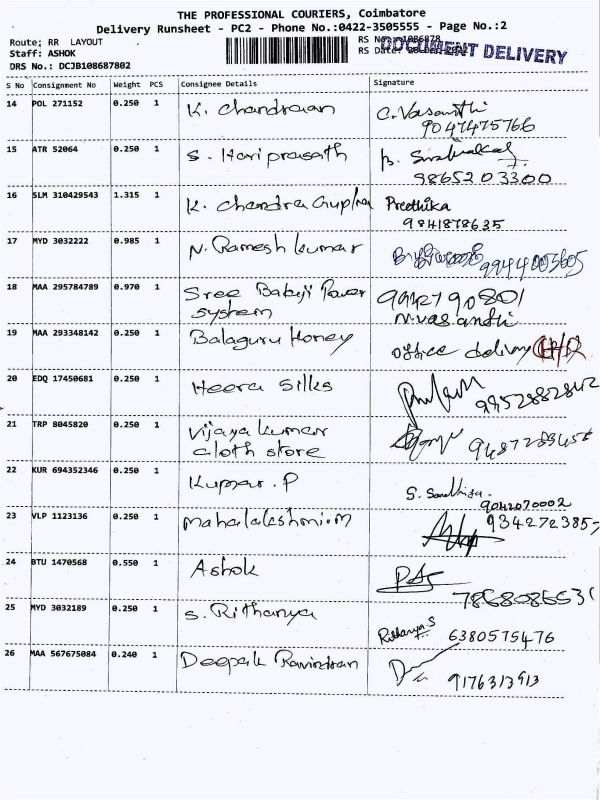 THE PROFESSIONAL COURIERS, Coimbatore
Delivery Runsheet - PC2 - Phone No.:0422-3505555 - Page No.:2
Route: RR LAYOUT
RS No.: 1086878
Staff: ASHOK
RS Date:
DOCUMENT DELIVERY
DRS No.: DCJB108687802
S No Consignment No Weight PCS Consignee Details Signature
14 POL 271152 0.250 1 K. Chandraan C. Vasanthi
9047475766
15 ATR 52064 0.250 1 S. Hariprasath
9865203300
16 SLM 310429543 1.315 1 K. Chandra Gupta Preethika
9841878635
17 MYD 3032222 0.985 1 N. Ramesh kumar 9944005605
18 MAA 295784789 0.970 1 Sree Babuji Power 994279080/
system N. vasandhi
19 MAA 293348142 0.250 1 Balaguru Honey office delivery
20 EDQ 17450681 0.250 1 Heera Silks
21 TRP 8045820 0.250 1 Vijaya kumar
cloth store
22 KUR 694352346 0.250 1 Kumar. P S. Sandhiya.
9042070002
23 VLP 1123136 0.250 1 mahalalakshmi.M 934272385
24 BTU 1470568 0.550 1 Ashok
25 MYD 3032189 0.250 1 S. Rithanya Rithanya.S 6380575476
26 MAA 567675084 0.240 1 Deepak Ravindran
9176313913